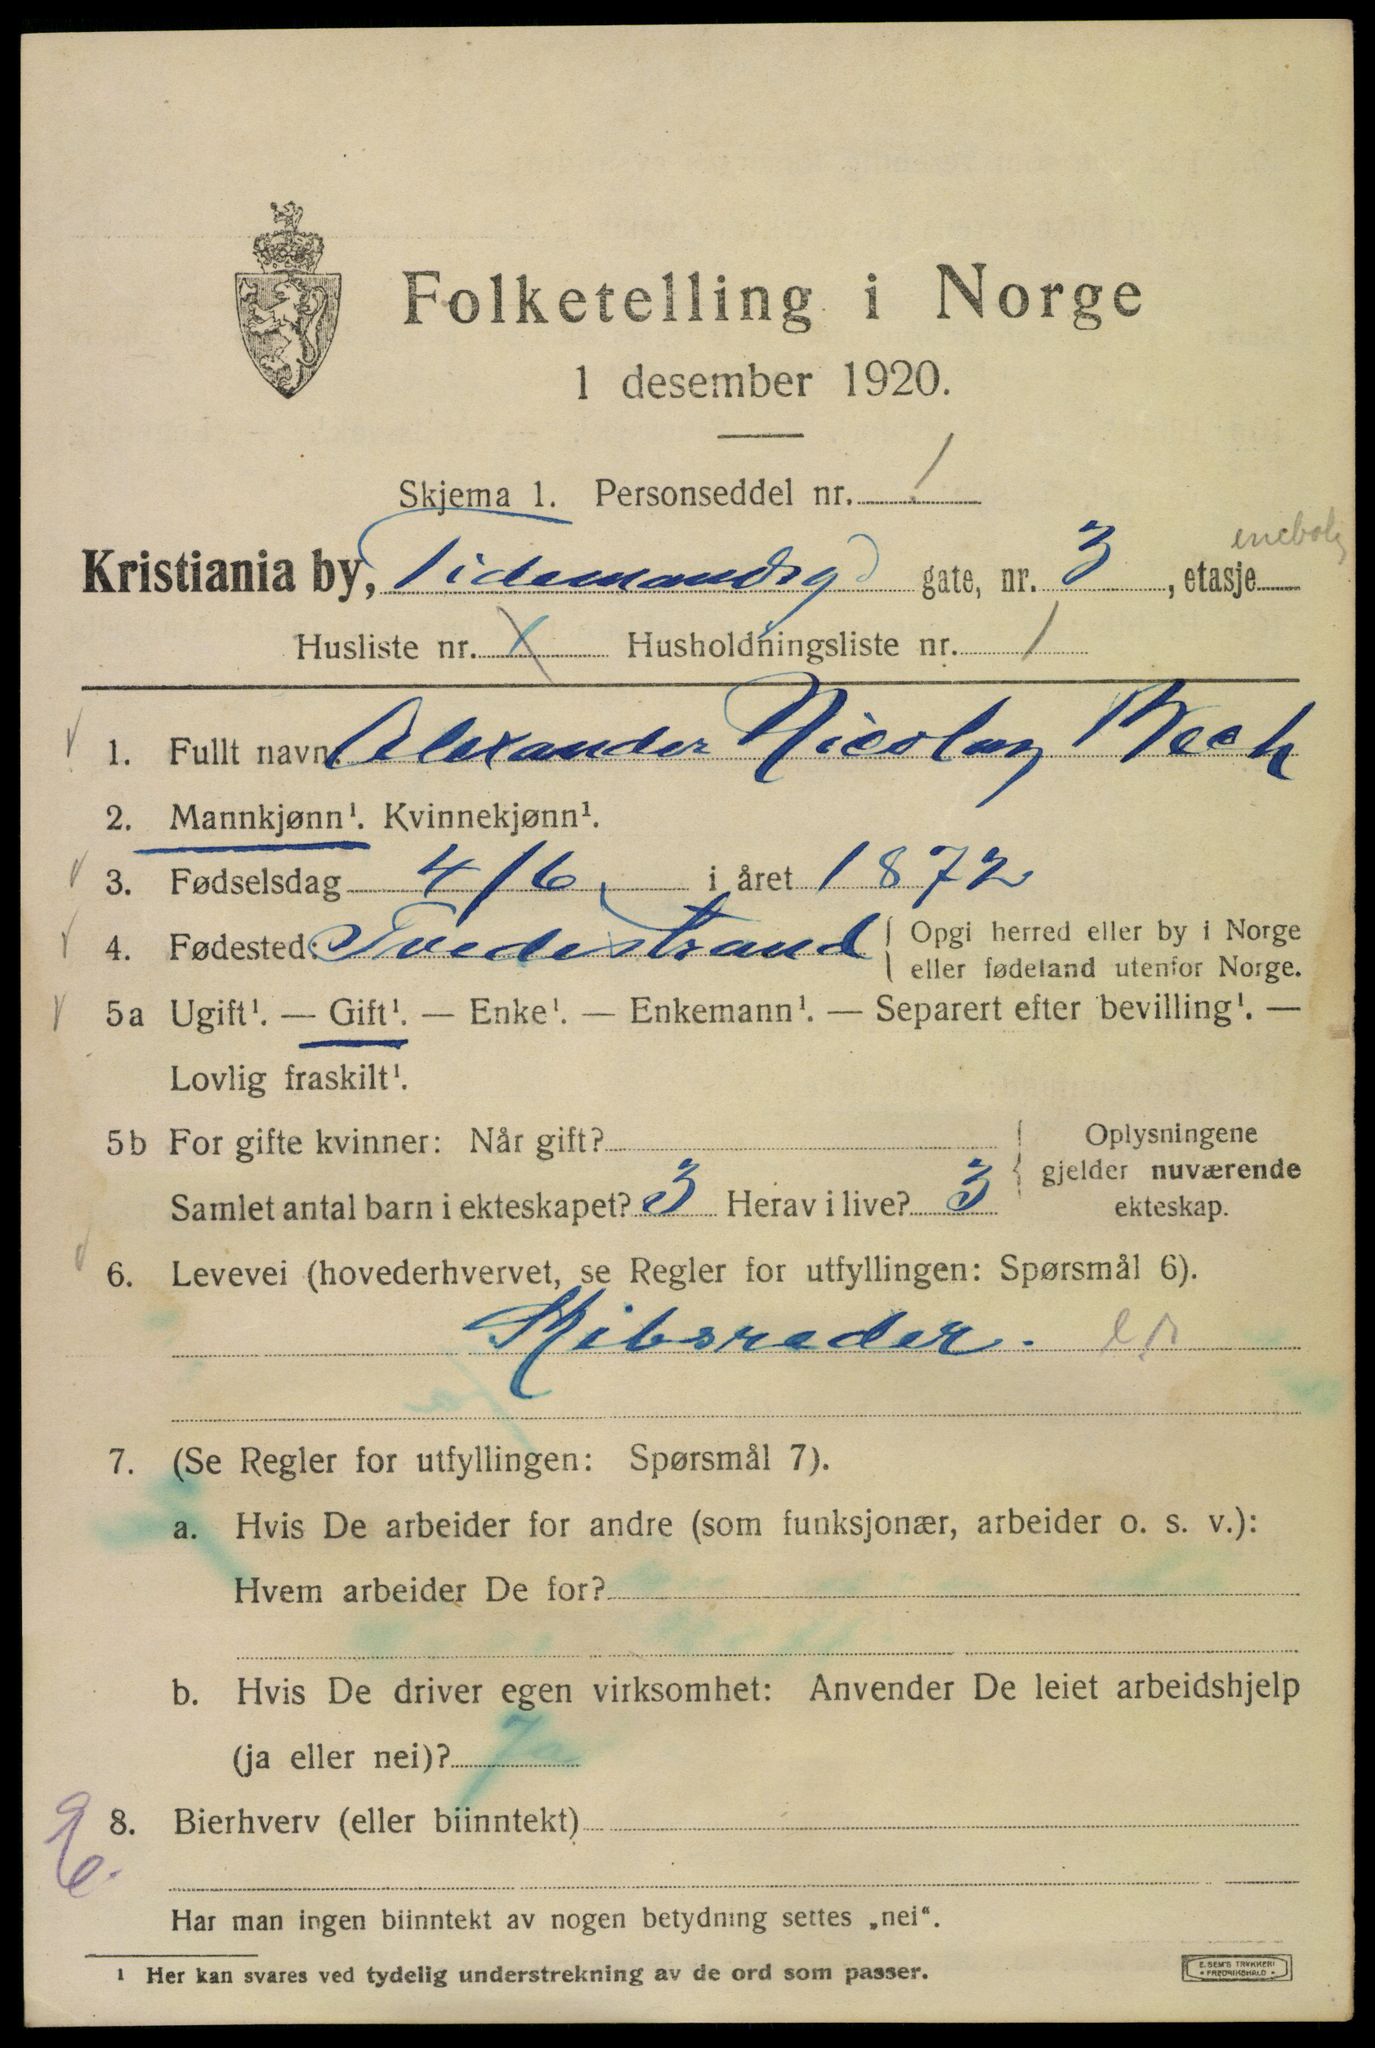 Folketelling i Norge
1 desember 1920.
Skjema 1. Personseddel nr. 1
Kristiania by, Tidemandsg gate, nr. 3, etasje enebolig
Husliste nr. X Husholdningsliste nr. 1
1. Fullt navn Alexander Nicolay Bech
2. Mannkjønn¹. Kvinnekjønn¹.
3. Fødselsdag 4/6 i året 1872
4. Fødested: Tvedestrand { Opgi herred eller by i Norge
eller fødeland utenfor Norge.
5a Ugift¹. — Gift¹. — Enke¹. — Enkemann¹. — Separert efter bevilling¹. —
Lovlig fraskilt¹.
5b For gifte kvinner: Når gift?
Samlet antal barn i ekteskapet? 3 Herav i live? 3
{ Oplysningene
gjelder nuværende
ekteskap.
6. Levevei (hovederhvervet, se Regler for utfyllingen: Spørsmål 6).
Skibsreder.
7. (Se Regler for utfyllingen: Spørsmål 7).
a. Hvis De arbeider for andre (som funksjonær, arbeider o. s. v.):
Hvem arbeider De for?
b. Hvis De driver egen virksomhet: Anvender De leiet arbeidshjelp
(ja eller nei)? Ja
8. Bierhverv (eller biinntekt)
Har man ingen biinntekt av nogen betydning settes „nei“.
¹ Her kan svares ved tydelig understrekning av de ord som passer.
E. SEM'S TRYKKERI
• FREDRIKSHALD •